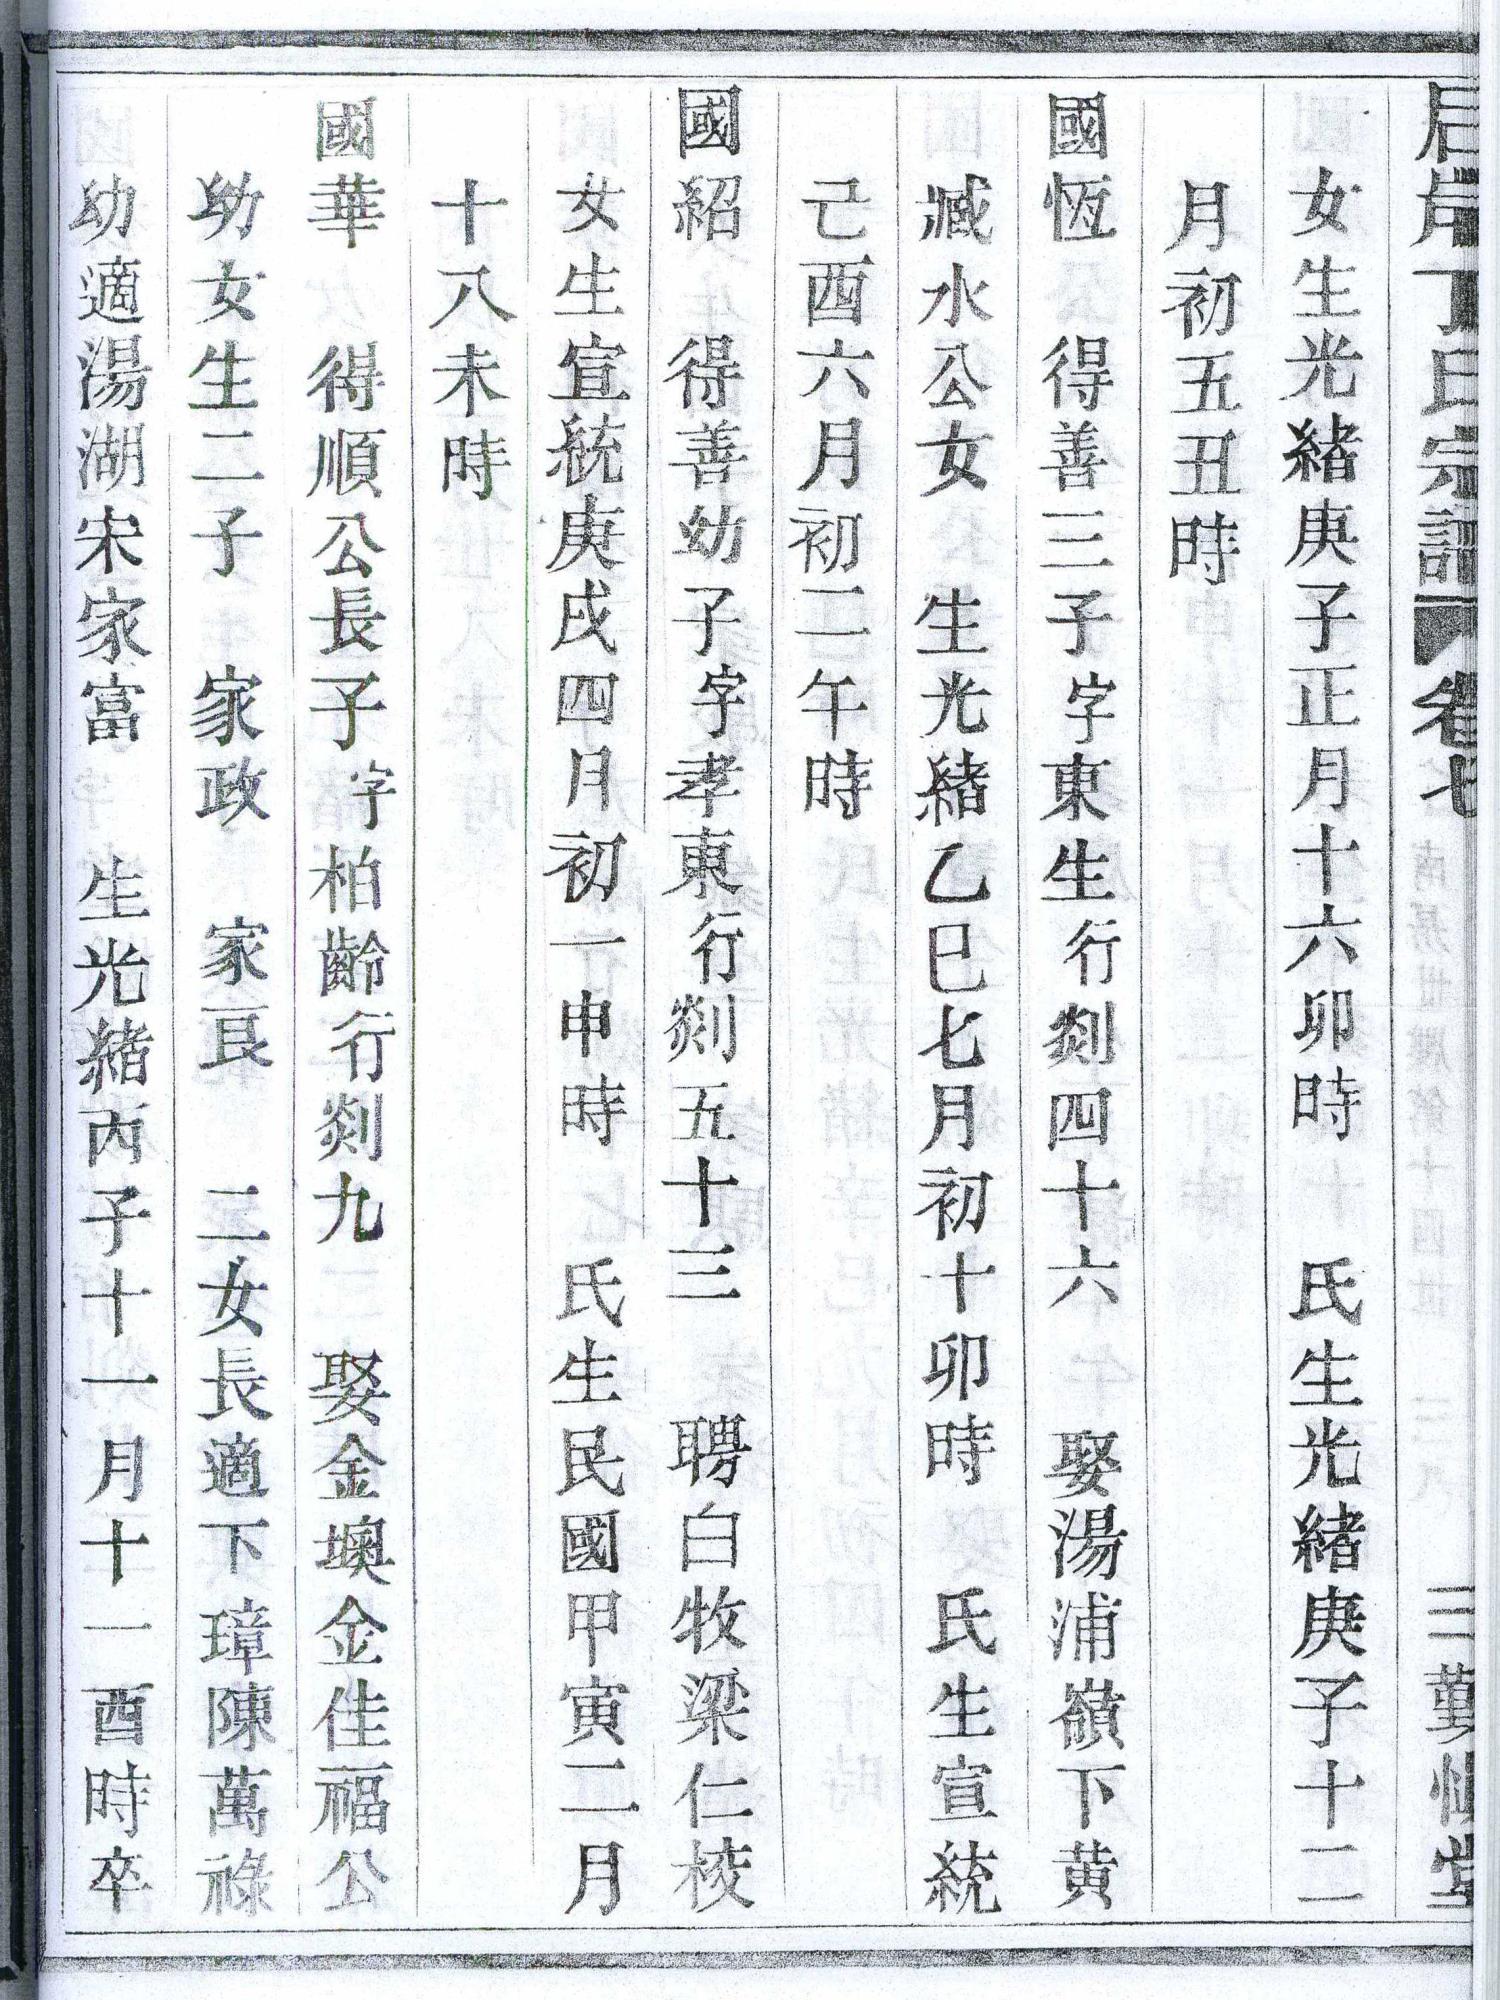 后岸丁氏宗譜 卷七 三 勤慎堂
女生光緒庚子正月十六卯時 氏生光緒庚子十二
月初五丑時
國恆 得善三子字東生行剡四十六 娶湯浦嶺下黄
臧水公女 生光緒乙巳七月初十卯時 氏生宣統
己酉六月初二午時
國紹 得善幼子字孝東行剡五十三 聘白牧梁仁校
女生宣統庚戌四月初一申時 氏生民國甲寅二月
十八未時
國華 得順公長子字柏齡行剡九 娶金墺金佳福公
幼女生二子 家政 家良 二女長適下璋陳萬祿
幼適湯湖宋家富 生光緒丙子十一月十一酉時卒